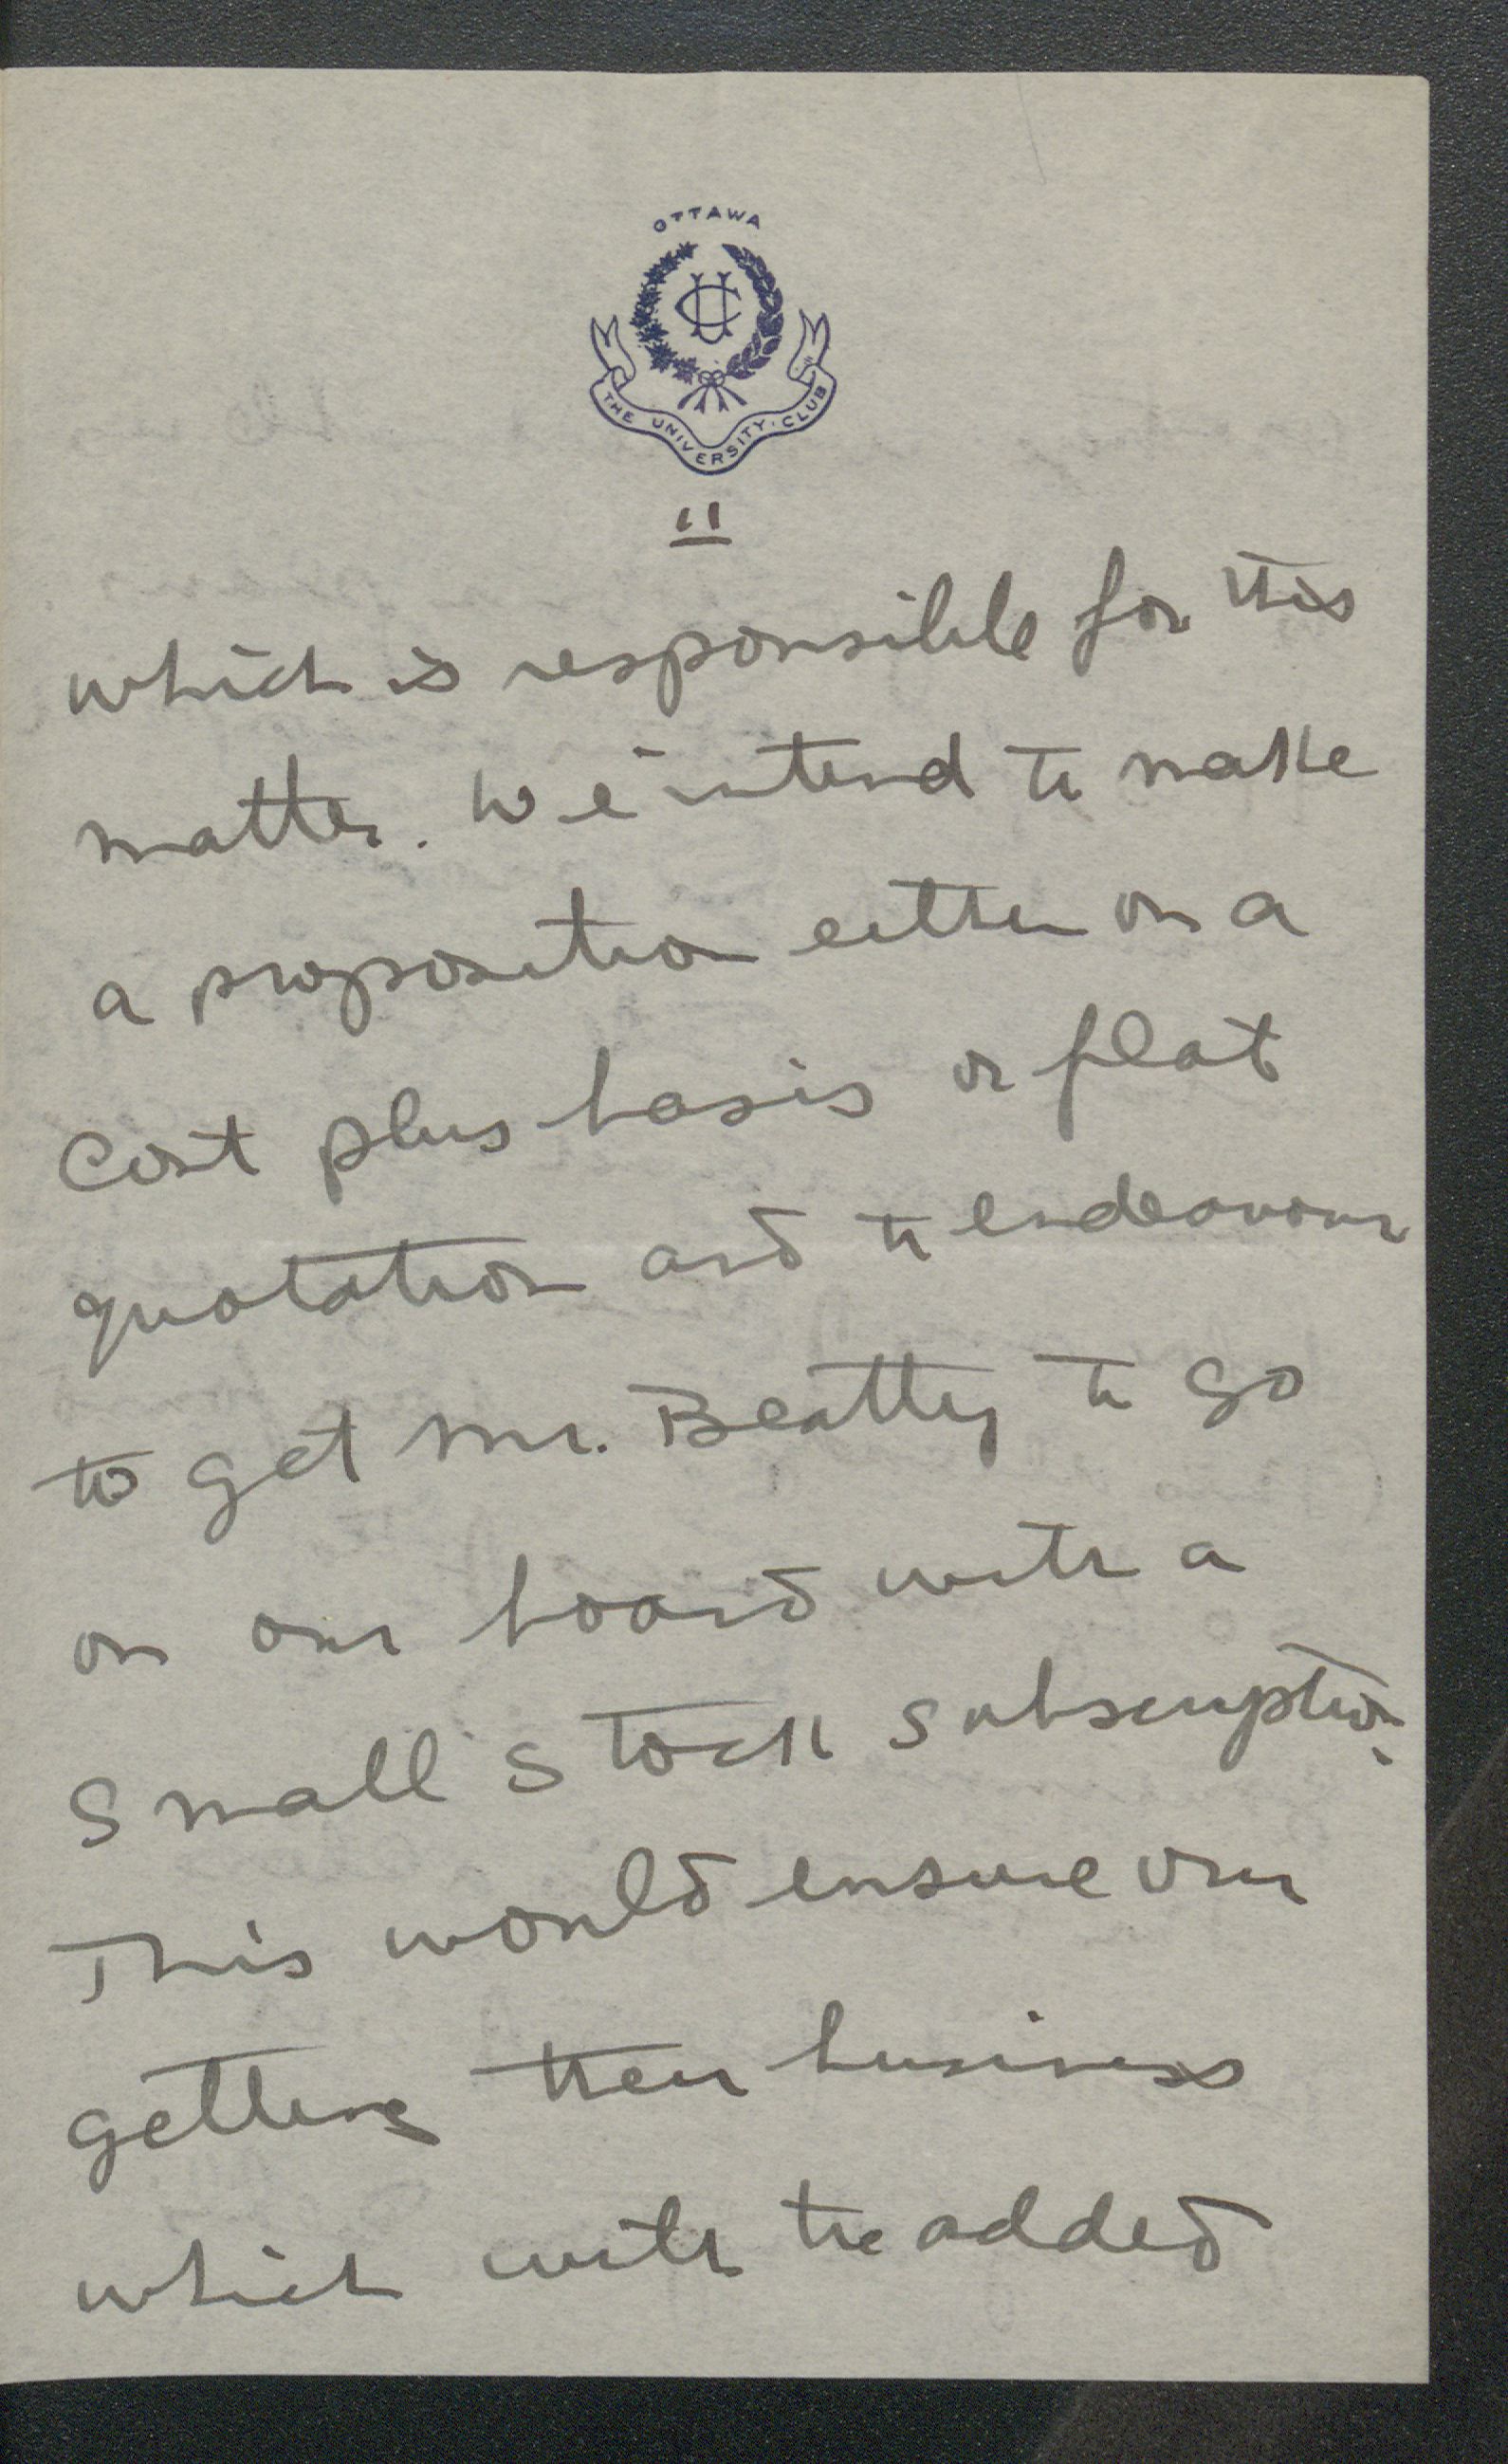 OTTAWA
UC
THE UNIVERSITY · CLUB
11
which is responsible for this
matter. We intend to make
a proposition either on a
cost plus basis or flat
quotation and to endeavour
to get Mr. Beatty to go
on our board with a
small stock subscription.
This would ensure our
getting their business
which with the added